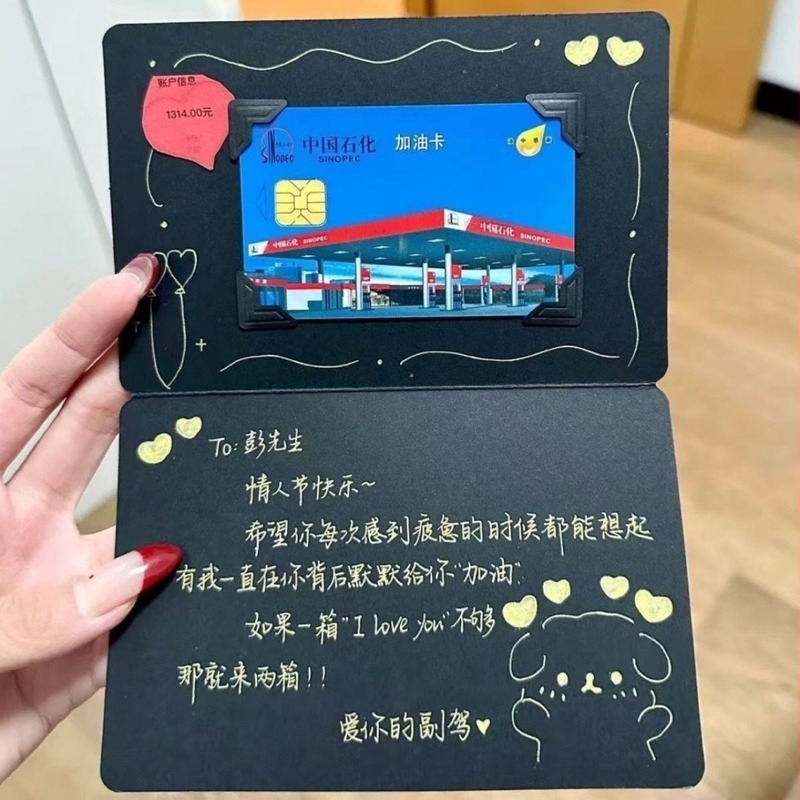 账户信息
1314.00元
SINOPEC
中国石化 加油卡
SINOPEC
中国石化 SINOPEC
中国石化 SINOPEC
To: 彭先生
情人节快乐~
希望你每次感到疲惫的时候都能想起
有我一直在你背后默默给你"加油".
如果一箱"I love you"不够
那就来两箱!!
爱你的副驾♥